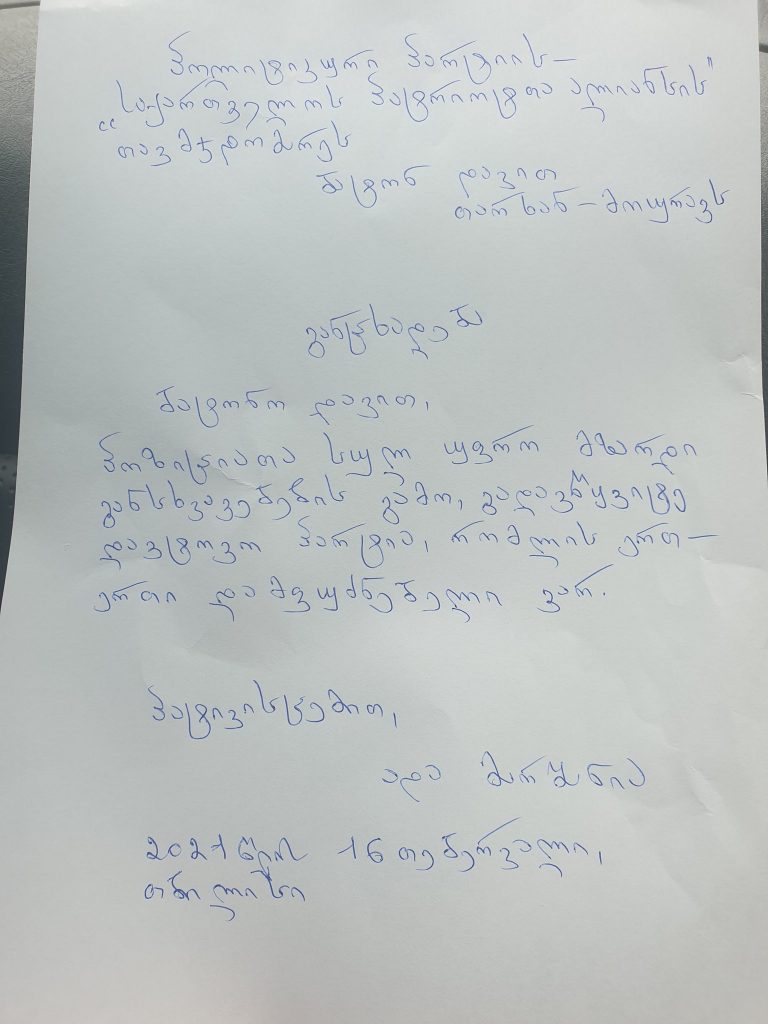 პოლიტიკური პარტიის —
„საქართველოს პატრიოტთა ალიანსის"
თავმჯდომარეს
ბატონ დავით
თარხან – მოურავს
განცხადება
ბატონო დავით,
პოზიციათა სულ უფრო მზარდი
განსხვავებების გამო, გადავწყვიტე
დავტოვო პარტია, რომლის ერთ–
ერთი დამფუძნებელი ვარ.
პატივისცემით,
ადა მარშანია
2021 წლის 16 თებერვალი,
თბილისი